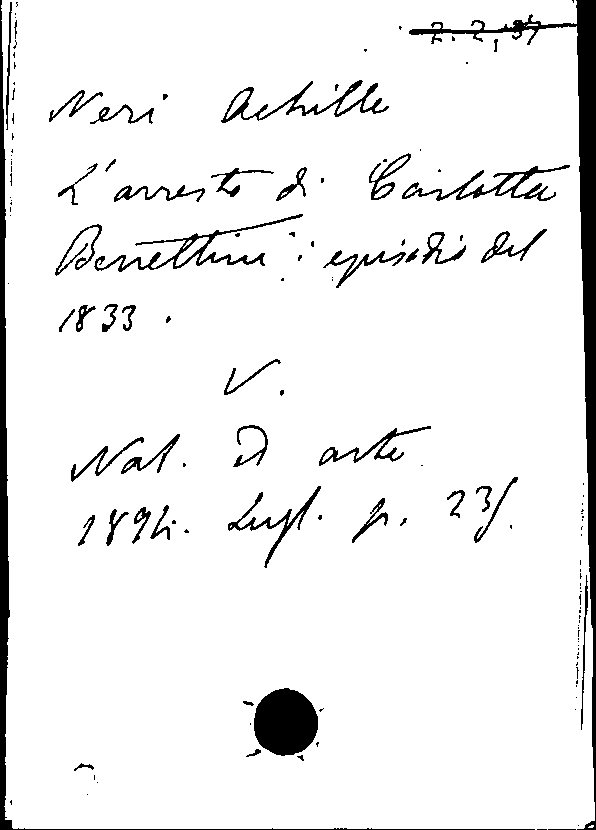 2. 2, 37
Neri Achille
L'arresto di Carlotta
Benettini: episodio del
1833.
V.
Nat. ed arte
1894. Lugl. p. 235.